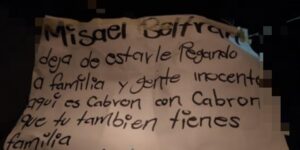 Misael Beltran
deja de estarle Pegando
a familia y gente inocente
aqui es Cabron con Cabron
que tu tambien tienes
familia